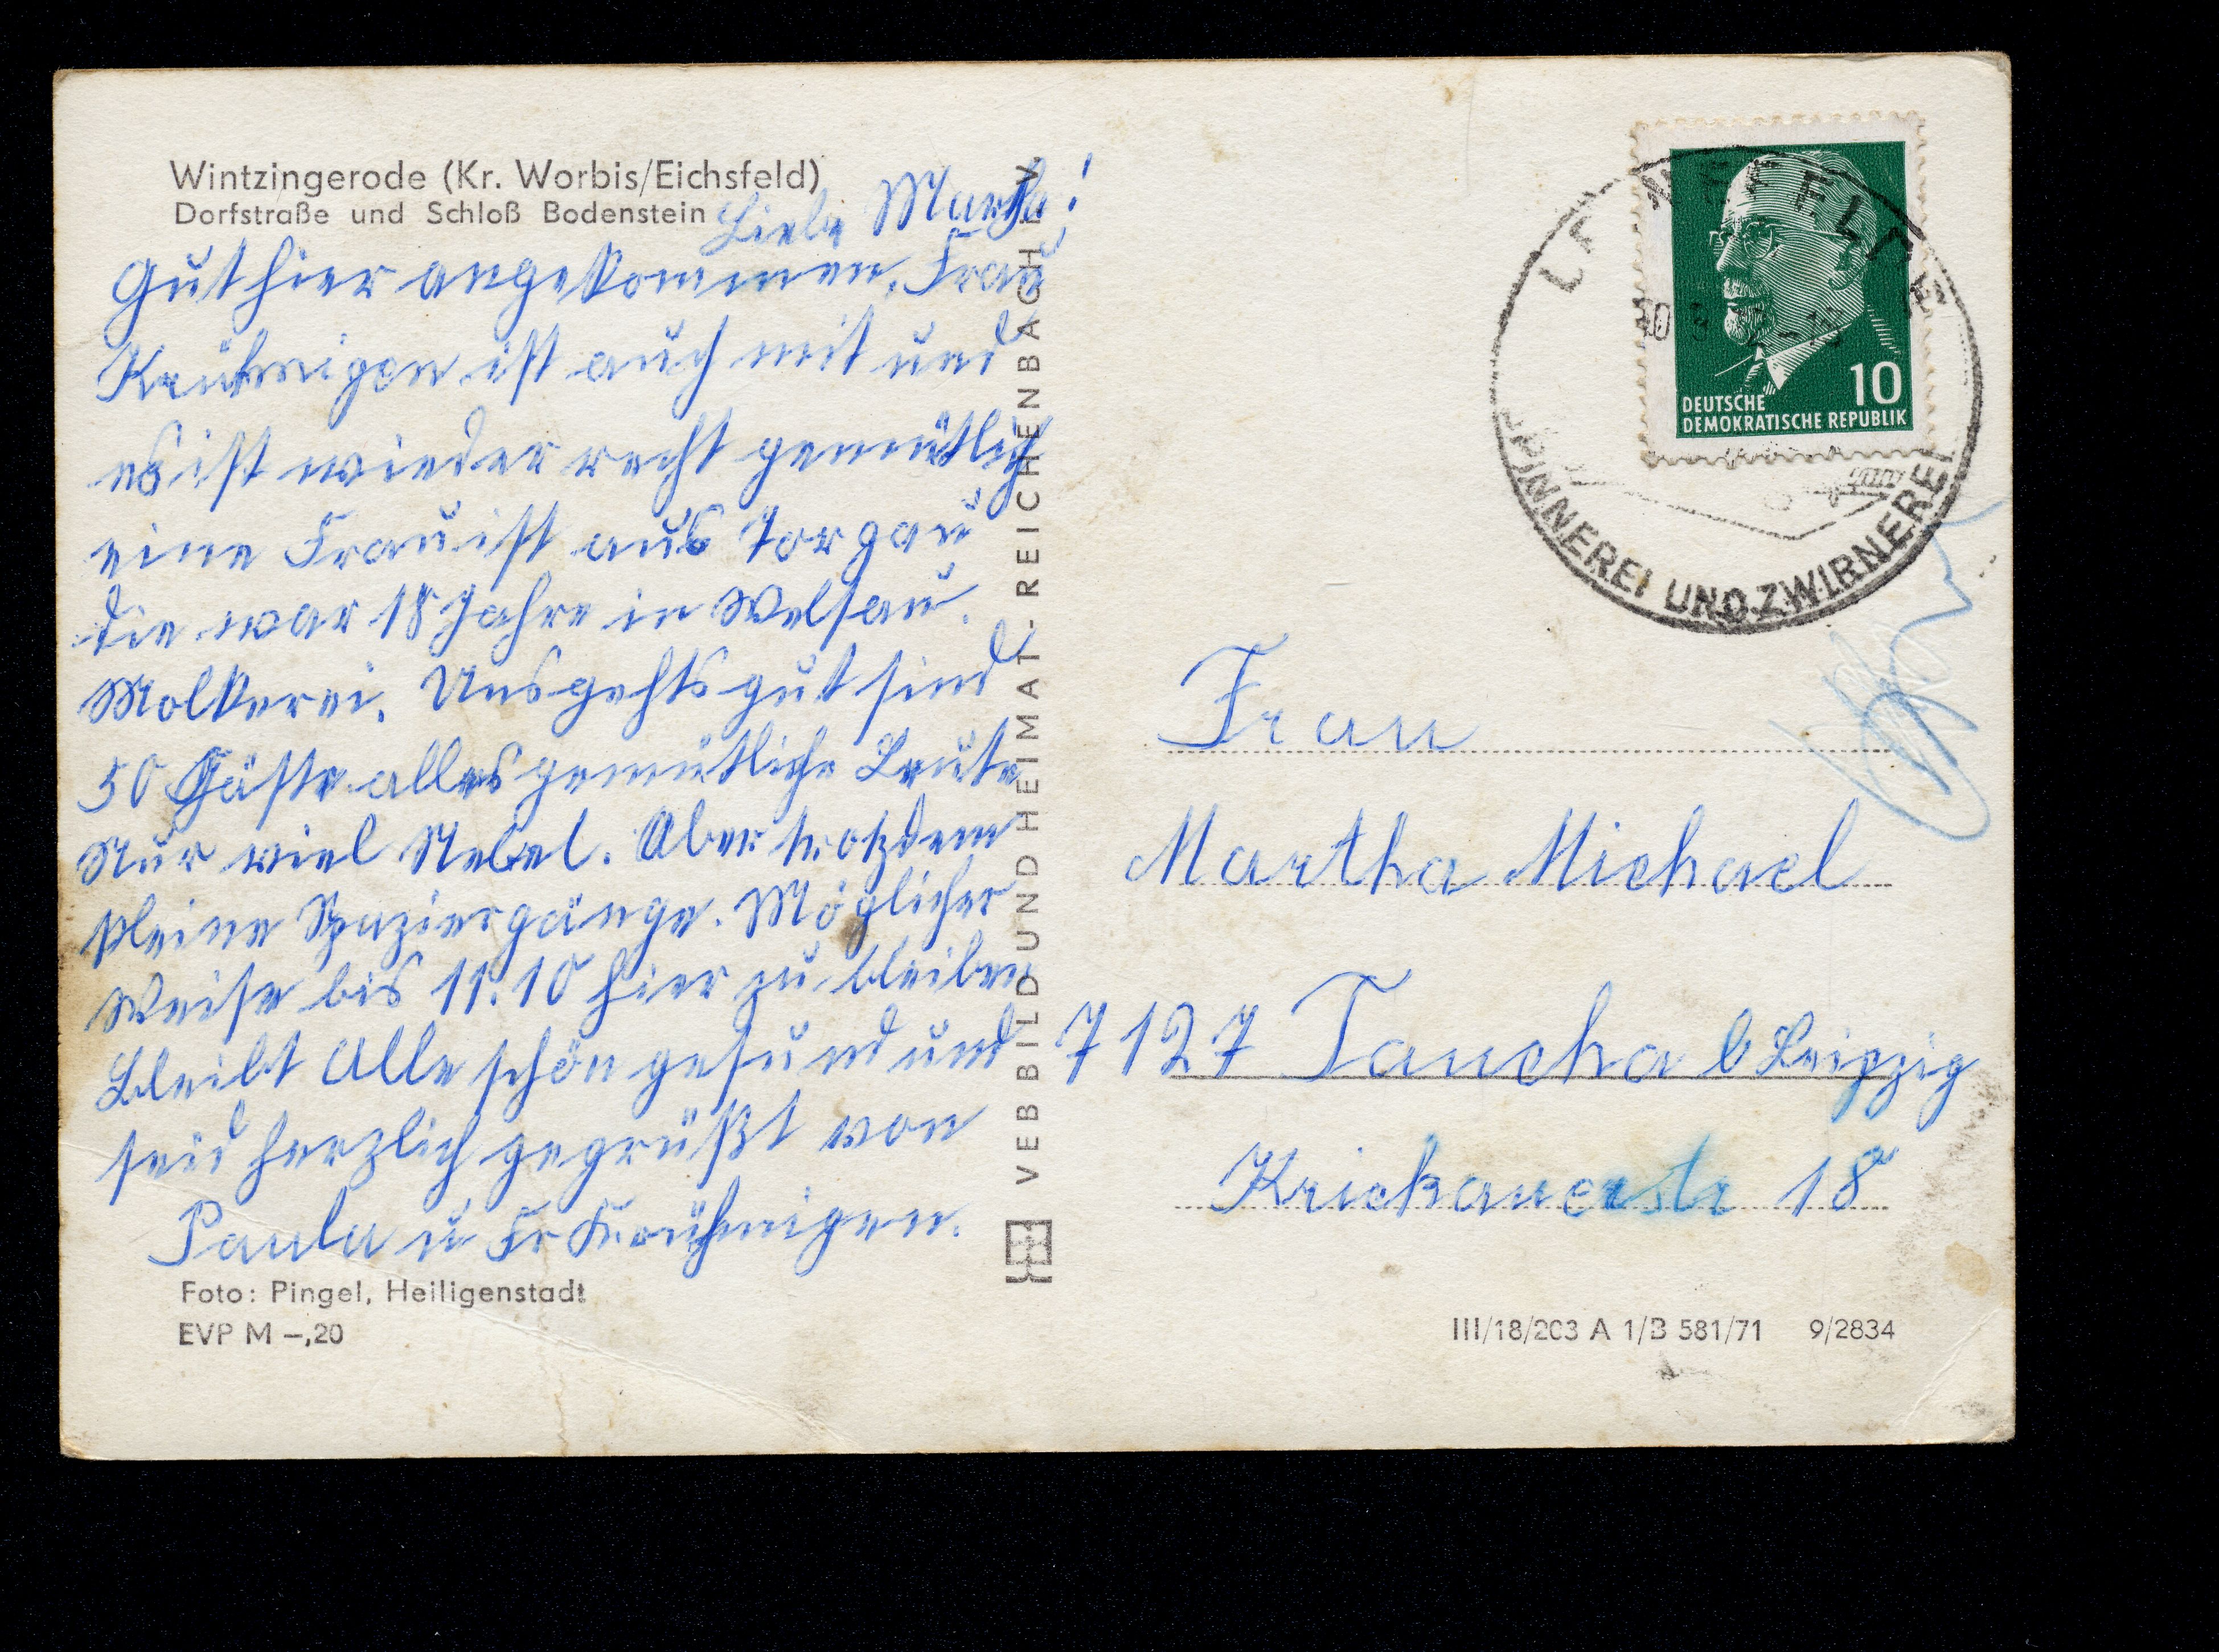 Wintzingerode (Kr. Worbis/Eichsfeld)
Dorfstraße und Schloß Bodenstein
Liebe Martha!
Gut hier angekommen, Frau
Krühmigen ist auch mit und
es ist wieder recht gemütlich
eine Frau ist aus Torgau
die war 18 Jahre in Welsau.
Molkerei. Uns gehts gut sind
50 Gäste alles gemütliche Leute
Nur viel Nebel. Aber trotzdem
kleine Spaziergänge. Möglicher
Weise bis 11.10 hier zu bleiben
Bleibt Alle schön gesund und
seid herzlich gegrüßt von
Paula u Fr Krühmigen.
Foto: Pingel, Heiligenstadt
EVP M –,20
VEB BILD UND HEIMAT - REICHENBACH I. V.
10
DEUTSCHE
DEMOKRATISCHE REPUBLIK
LENGEFELD
SPINNEREI UND ZWIRNEREI
Frau
Martha Michael
7127 Taucha b Leipzig
Krickauerstr 18
III/18/203 A 1/B 581/71 9/2834